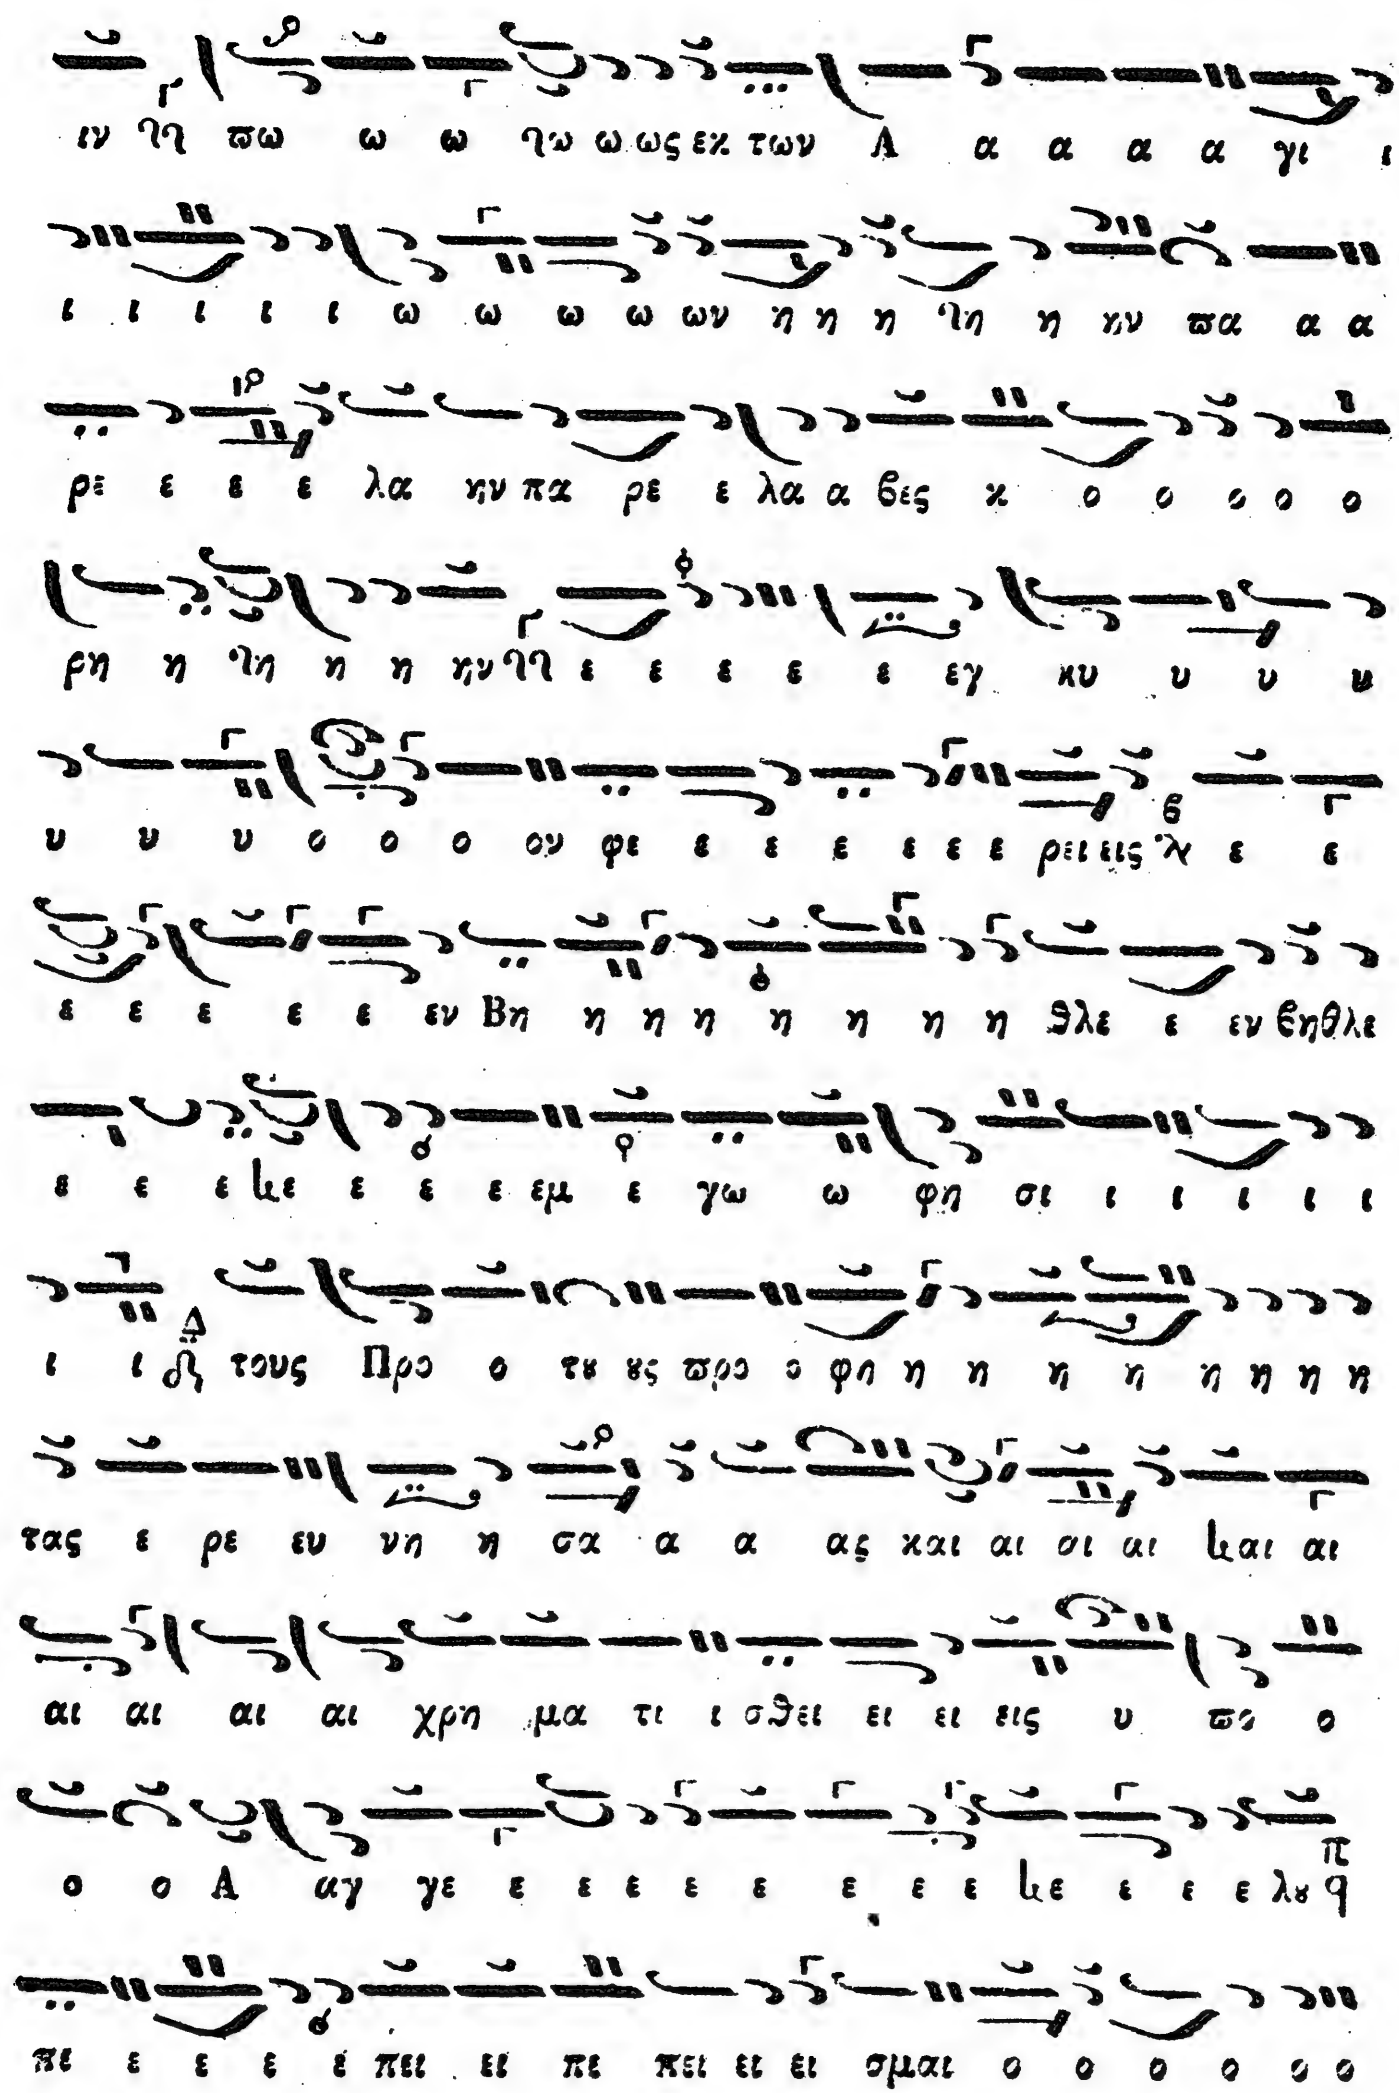 ιν πω ω ω πω ω ως εκ των Α α α α α γι ι
ι ι ι ι ι ω ω ω ω ων η η η τη η ην ϖα α α
ρε ε ε ε λα ην πα ρε ε λα α ϐες κ ο ο ο ο ο
ρη η τη η η ην ε ε ε ε ε εγ κυ υ υ υ
υ υ υ ο ο ο ον φε ε ε ε ε ε ε ρει εις ϐ ε ε
ε ε ε ε ε εν Βη η η η η η η η ϑλε ε εν ϐηθλε
ε ε ε κε ε ε ε εμ ε γω ω φη σι ι ι ι ι ι
ι ι Δ τους Προ ο τȣ ȣς ϖρο ο φη η η η η η η η η
τας ε ρε ευ νη η σα α α ας και αι αι αι και αι
αι αι αι αι χρη μα τι ι σϑει ει ει εις υ ϖο ο
ο ο Α αγ γε ε ε ε ε ε ε ε ε κε ε ε ε λȣ π q
πε ε ε ε ε πει ει πε πει ει ει σμαι ο ο ο ο ο ο